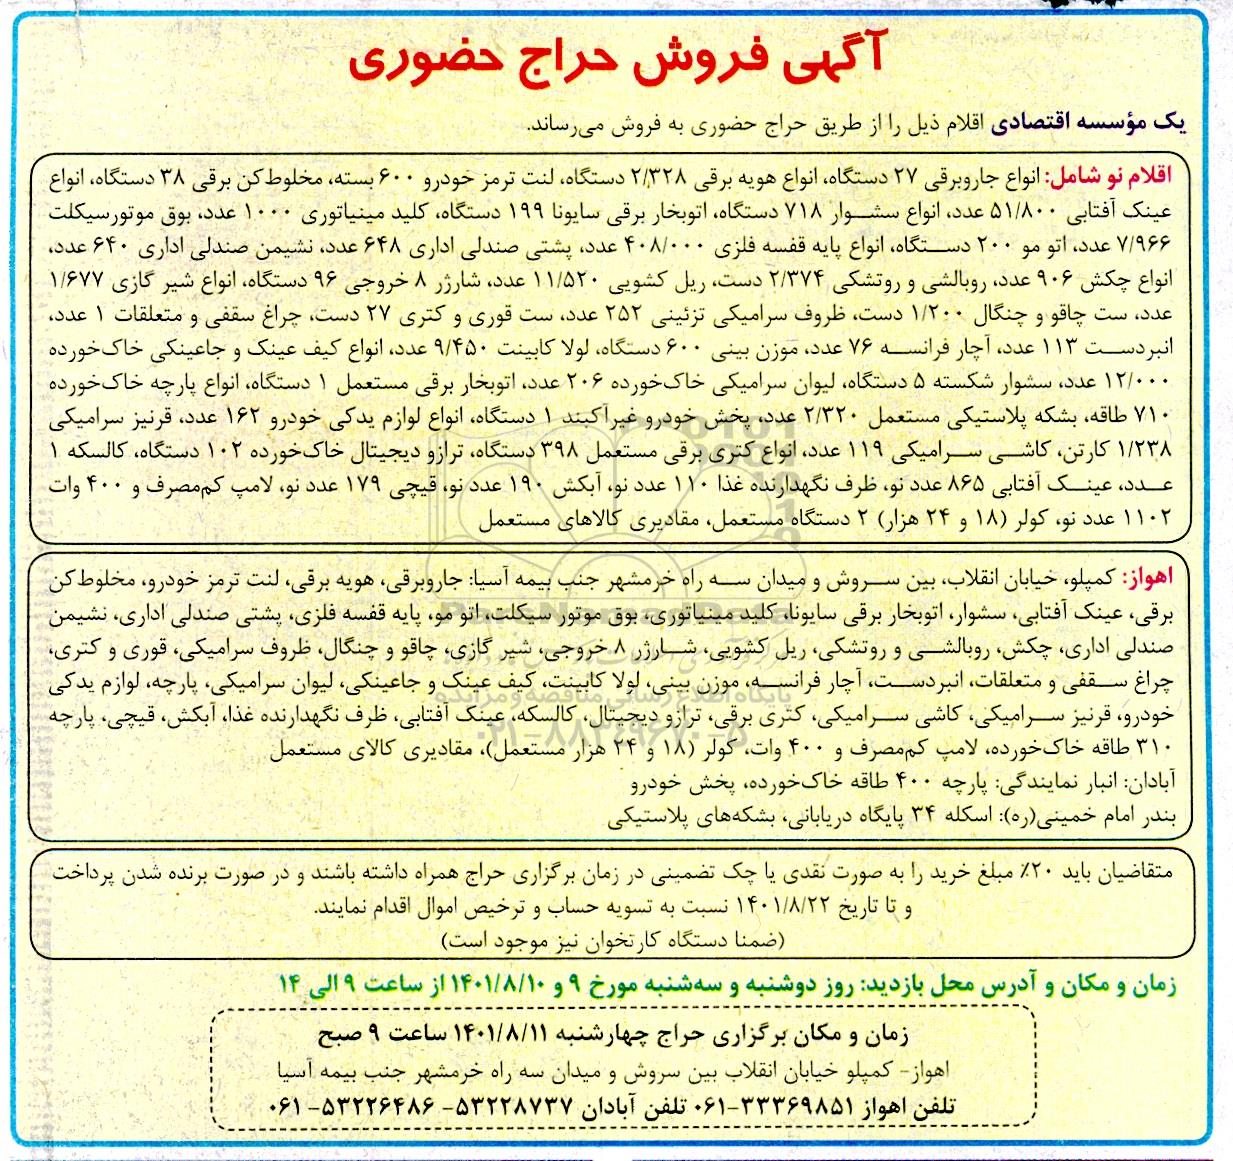 آگهی فروش حراج حضوری
یک مؤسسه اقتصادی اقلام ذیل را از طریق حراج حضوری به فروش می‌رساند.
اقلام نو شامل: انواع جاروبرقی ۲۷ دستگاه، انواع هویه برقی ۲/۳۲۸ دستگاه، لنت ترمز خودرو ۶۰۰ بسته، مخلوط‌کن برقی ۳۸ دستگاه، انواع
عینک آفتابی ۵۱/۸۰۰ عدد، انواع سشوار ۷۱۸ دستگاه، اتوبخار برقی سایونا ۱۹۹ دستگاه، کلید مینیاتوری ۱۰۰۰ عدد، بوق موتورسیکلت
۷/۹۶۶ عدد، اتو مو ۲۰۰ دستگاه، انواع پایه قفسه فلزی ۴۰۸/۰۰۰ عدد، پشتی صندلی اداری ۶۴۸ عدد، نشیمن صندلی اداری ۶۴۰ عدد،
انواع چکش ۹۰۶ عدد، روبالشی و روتشکی ۲/۳۷۴ دست، ریل کشویی ۱۱/۵۲۰ عدد، شارژر ۸ خروجی ۹۶ دستگاه، انواع شیر گازی ۱/۶۷۷
عدد، ست چاقو و چنگال ۱/۲۰۰ دست، ظروف سرامیکی تزئینی ۲۵۲ عدد، ست قوری و کتری ۲۷ دست، چراغ سقفی و متعلقات ۱ عدد،
انبردست ۱۱۳ عدد، آچار فرانسه ۷۶ عدد، موزن بینی ۶۰۰ دستگاه، لولا کابینت ۹/۴۵۰ عدد، انواع کیف عینک و جاعینکی خاک‌خورده
۱۲/۰۰۰ عدد، سشوار شکسته ۵ دستگاه، لیوان سرامیکی خاک‌خورده ۲۰۶ عدد، اتوبخار برقی مستعمل ۱ دستگاه، انواع پارچه خاک‌خورده
۷۱۰ طاقه، بشکه پلاستیکی مستعمل ۲/۳۲۰ عدد، پخش خودرو غیرآکبند ۱ دستگاه، انواع لوازم یدکی خودرو ۱۶۲ عدد، قرنیز سرامیکی
۱/۲۳۸ کارتن، کاشی سرامیکی ۱۱۹ عدد، انواع کتری برقی مستعمل ۳۹۸ دستگاه، ترازو دیجیتال خاک‌خورده ۱۰۲ دستگاه، کالسکه ۱
عدد، عینک آفتابی ۸۶۵ عدد نو، ظرف نگهدارنده غذا ۱۱۰ عدد نو، آبکش ۱۹۰ عدد نو، قیچی ۱۷۹ عدد نو، لامپ کم‌مصرف و ۴۰۰ وات
۱۱۰۲ عدد نو، کولر (۱۸ و ۲۴ هزار) ۲ دستگاه مستعمل، مقادیری کالاهای مستعمل
اهواز: کمپلو، خیابان انقلاب، بین سروش و میدان سه راه خرمشهر جنب بیمه آسیا: جاروبرقی، هویه برقی، لنت ترمز خودرو، مخلوط‌کن
برقی، عینک آفتابی، سشوار، اتوبخار برقی سایونا، کلید مینیاتوری، بوق موتور سیکلت، اتو مو، پایه قفسه فلزی، پشتی صندلی اداری، نشیمن
صندلی اداری، چکش، روبالشی و روتشکی، ریل کشویی، شارژر ۸ خروجی، شیر گازی، چاقو و چنگال، ظروف سرامیکی، قوری و کتری،
چراغ سقفی و متعلقات، انبردست، آچار فرانسه، موزن بینی، لولا کابینت، کیف عینک و جاعینکی، لیوان سرامیکی، پارچه، لوازم یدکی
خودرو، قرنیز سرامیکی، کاشی سرامیکی، کتری برقی، ترازو دیجیتال، کالسکه، عینک آفتابی، ظرف نگهدارنده غذا، آبکش، قیچی، پارچه
۳۱۰ طاقه خاک‌خورده، لامپ کم‌مصرف و ۴۰۰ وات، کولر (۱۸ و ۲۴ هزار مستعمل)، مقادیری کالای مستعمل
آبادان: انبار نمایندگی: پارچه ۴۰۰ طاقه خاک‌خورده، پخش خودرو
بندر امام خمینی(ره): اسکله ۳۴ پایگاه دریابانی، بشکه‌های پلاستیکی
متقاضیان باید ۲۰٪ مبلغ خرید را به صورت نقدی یا چک تضمینی در زمان برگزاری حراج همراه داشته باشند و در صورت برنده شدن پرداخت
و تا تاریخ ۱۴۰۱/۸/۲۲ نسبت به تسویه حساب و ترخیص اموال اقدام نمایند.
(ضمنا دستگاه کارتخوان نیز موجود است)
زمان و مکان و آدرس محل بازدید: روز دوشنبه و سه‌شنبه مورخ ۹ و ۱۴۰۱/۸/۱۰ از ساعت ۹ الی ۱۴
زمان و مکان برگزاری حراج چهارشنبه ۱۴۰۱/۸/۱۱ ساعت ۹ صبح
اهواز- کمپلو خیابان انقلاب بین سروش و میدان سه راه خرمشهر جنب بیمه آسیا
تلفن اهواز ۳۳۳۶۹۸۵۱-۰۶۱ تلفن آبادان ۵۳۲۲۸۷۳۷- ۵۳۲۲۶۴۸۶-۰۶۱
پایگاه اطلاع رسانی مناقصه و مزایده
۰۲۱-۸۸۳۴۹۶۷۰-۵